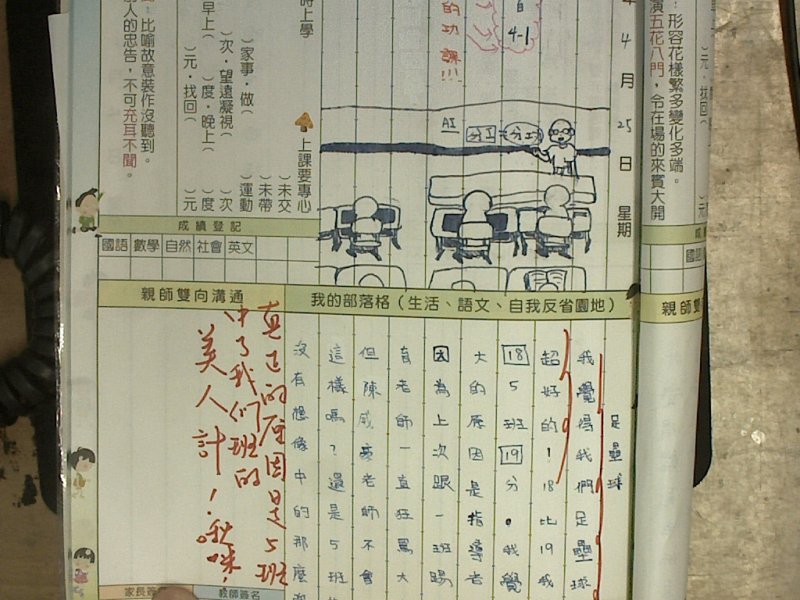 4月25日 星期
：形容花樣繁多變化多端。
演五花八門，令在場的來賓大開
元．找回（
的功課!!!
4-1
AI
分工
分工
時上學
）家事．做（
）次．望遠凝視（
早上（ ）度．晚上（
）元．找回（
上課要專心
）未交
）未帶
）運動
）次
）度
）元
：比喻故意裝作沒聽到。
別人的忠告，不可充耳不聞。
成績登記
國語 數學 自然 社會 英文
我的部落格（生活、語文、自我反省園地）
足壘球
我覺得我們足壘球
超好的！18比19我
18 5班 19 分。我覺
大的原因是指導者
因為上次跟一班踢
有老師一直狂罵大
但陳威豪老師不會
這樣嗎？還是5班
沒有想像中的那麼
親師雙向溝通
真正的原因是5班
中了我們班的
美人計！啾咪！
教師簽名
親師雙